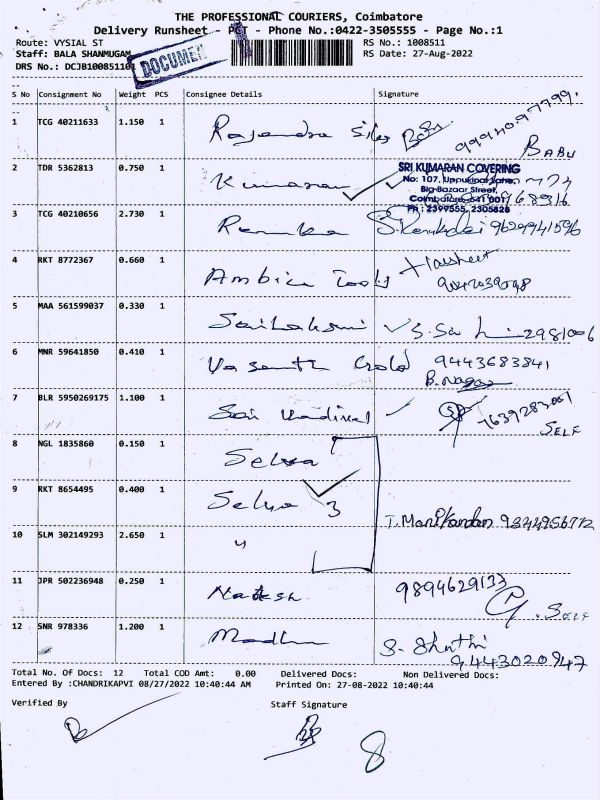 THE PROFESSIONAL COURIERS, Coimbatore
Delivery Runsheet - PCT - Phone No.:0422-3505555 - Page No.:1
Route: VYSIAL ST RS No.: 1008511
Staff: BALA SHANMUGAM RS Date: 27-Aug-2022
DRS No.: DCJB100851101
DOCUMEN
S No Consignment No Weight PCS Consignee Details Signature
1 TCG 40211633 1.150 1 Rajendra Silks Babu 9994097799.
BABU
2 TDR 5362813 0.750 1 Kumaran
SRI KUMARAN COVERING
No: 107, Uppukinar Lane,
Big Bazaar Street,
Coimbatore-641 001
PH : 2399555, 2305828
3 TCG 40210656 2.730 1 Renuka 9629941596
4 RKT 8772367 0.660 1 Ambica Tools Harsheet
9042039098
5 MAA 561599037 0.330 1 Sailakshmi
6 MNR 59641850 0.410 1 Vasanth Gold 9443683841
B.Nagar
7 BLR 5950269175 1.100 1 Sai 7639283001
SELF
8 NGL 1835860 0.150 1 Selva
9 RKT 8654495 0.400 1 Selva 3
T. Manikandan 9344956772
10 SLM 302149293 2.650 1 "
11 JPR 502236948 0.250 1 Natesh 9894629133
G. SELF
12 SNR 978336 1.200 1 Madhu S. Shuthi
9443020947
Total No. Of Docs: 12 Total COD Amt: 0.00 Delivered Docs: Non Delivered Docs:
Entered By :CHANDRIKAPVI 08/27/2022 10:40:44 AM Printed On: 27-08-2022 10:40:44
Verified By Staff Signature
8